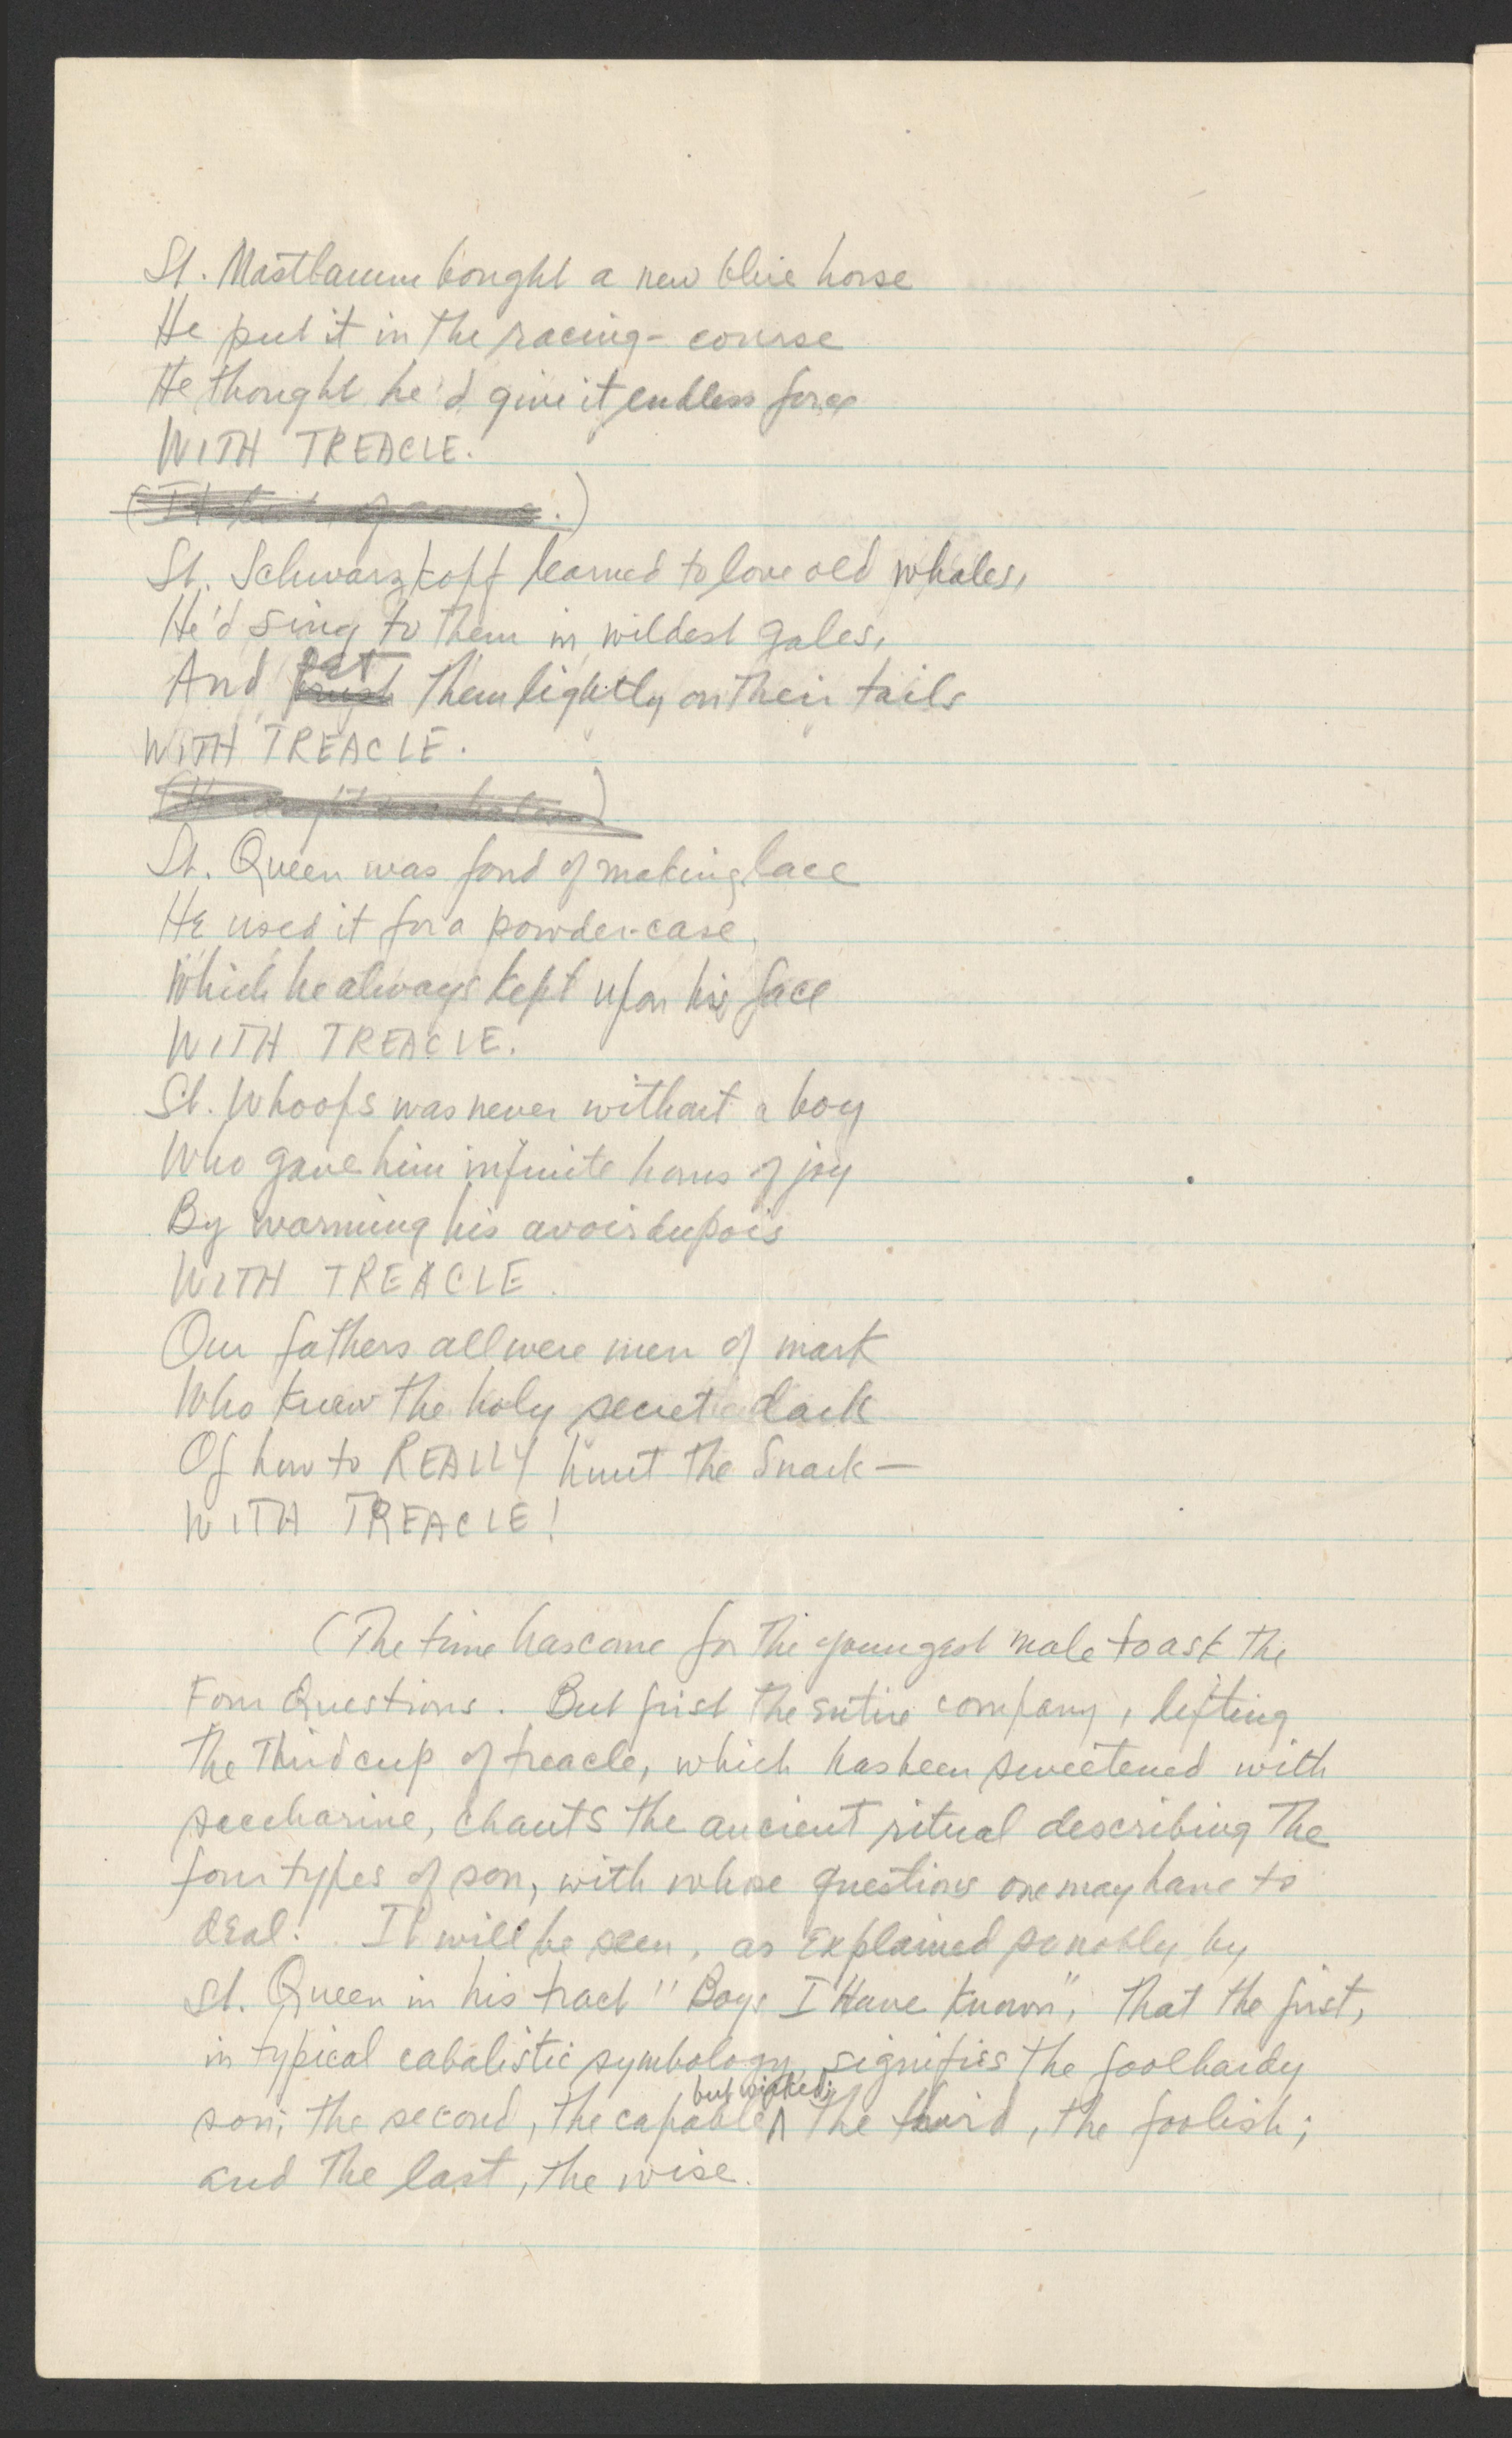 St. Mastbaum bought a new blue horse
He put it in the racing-course
He thought he'd give it endless force
WITH TREACLE.
St. Schwarzkopf learned to love old whales,
He'd sing to them in wildest gales,
And pat them lightly on their tails
WITH TREACLE.
St. Queen was fond of making lace
He used it for a powder-case,
Which he always kept upon his face
WITH TREACLE.
St. Whoops was never without a boy
Who gave him infinite hours of joy
By warming his avoirdupois
WITH TREACLE.
Our fathers all were men of mark
Who knew the holy secret dark
Of how to REALLY hunt the Snark—
WITH TREACLE!
(The time has come for the youngest male to ask the
Four Questions. But first the entire company, lifting
the third cup of treacle, which has been sweetened with
saccharine, chants the ancient ritual describing the
four types of son, with whose questions one may have to
deal. It will be seen, as explained so nobly by
St. Queen in his tract "Boys I Have Known", that the first,
in typical cabalistic symbology, signifies the foolhardy
son; the second, the capable but wicked; the third, the foolish;
and the last, the wise.